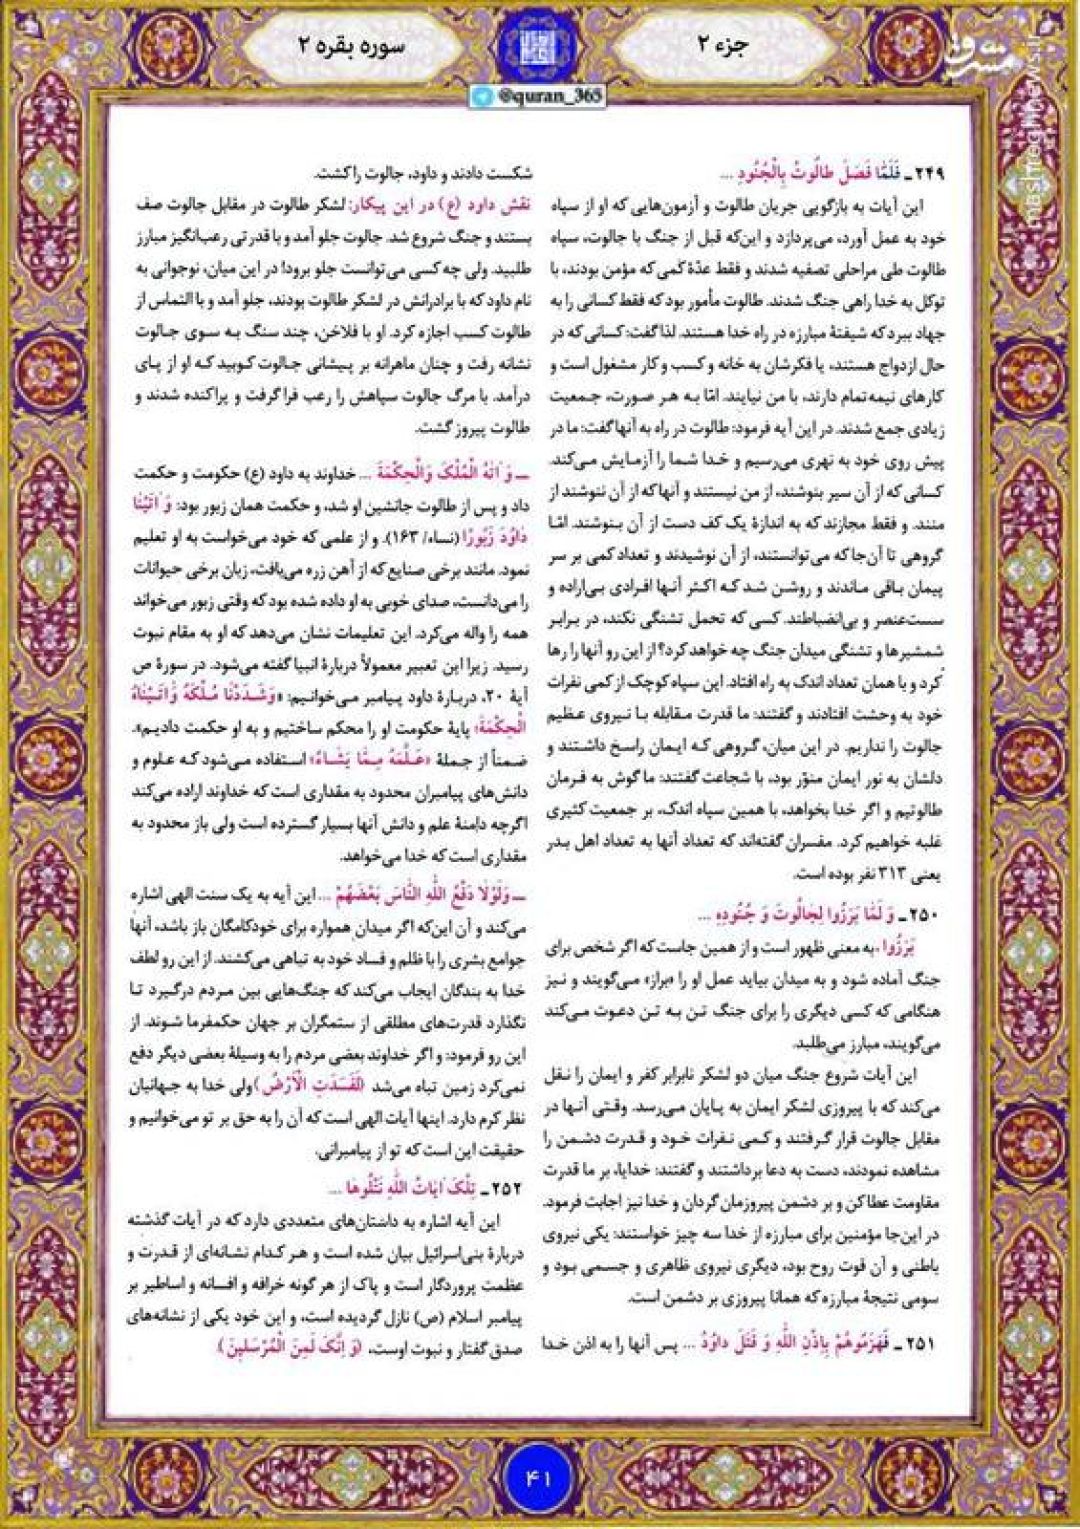 جزء ۲
سوره بقره ۲
@quran_365
مشرق
mashreghnews.ir
۲۴۹ـ فَلَمَّا فَصَلَ طالُوتُ بِالْجُنُودِ ...
این آیات به بازگویی جریان طالوت و آزمون‌هایی که او از سپاه
خود به عمل آورد، می‌پردازد و این‌که قبل از جنگ با جالوت، سپاه
طالوت طی مراحلی تصفیه شدند و فقط عدّهٔ کمی که مؤمن بودند، با
توکل به خدا راهی جنگ شدند. طالوت مأمور بود که فقط کسانی را به
جهاد ببرد که شیفتهٔ مبارزه در راه خدا هستند. لذا گفت: کسانی که در
حال ازدواج هستند، یا فکرشان به خانه و کسب و کار مشغول است و
کارهای نیمه‌تمام دارند، با من نیایند. امّا به هر صورت، جمعیت
زیادی جمع شدند. در این آیه فرمود: طالوت در راه به آنها گفت: ما در
پیش روی خود به نهری می‌رسیم و خدا شما را آزمایش می‌کند.
کسانی که از آن سیر بنوشند، از من نیستند و آنها که از آن ننوشند از
منند. و فقط مجازند که به اندازهٔ یک کف دست از آن بنوشند. امّا
گروهی تا آن‌جا که می‌توانستند، از آن نوشیدند و تعداد کمی بر سر
پیمان باقی ماندند و روشن شد که اکثر آنها افرادی بی‌اراده و
سست‌عنصر و بی‌انضباطند. کسی که تحمل تشنگی نکند، در برابر
شمشیرها و تشنگی میدان جنگ چه خواهد کرد؟ از این رو آنها را رها
کرد و با همان تعداد اندک به راه افتاد. این سپاه کوچک از کمی نفرات
خود به وحشت افتادند و گفتند: ما قدرت مقابله با نیروی عظیم
جالوت را نداریم. در این میان، گروهی که ایمان راسخ داشتند و
دلشان به نور ایمان منوّر بود، با شجاعت گفتند: ما گوش به فرمان
طالوتیم و اگر خدا بخواهد، با همین سپاه اندک، بر جمعیت کثیری
غلبه خواهیم کرد. مفسران گفته‌اند که تعداد آنها به تعداد اهل بدر
یعنی ۳۱۳ نفر بوده است.
۲۵۰ـ وَ لَمَّا بَرَزُوا لِجالُوتَ وَ جُنُودِهِ ...
بَرَزُوا، به معنی ظهور است و از همین جاست که اگر شخص برای
جنگ آماده شود و به میدان بیاید عمل او را «براز» می‌گویند و نیز
هنگامی که کسی دیگری را برای جنگ تن به تن دعوت می‌کند
می‌گویند، مبارز می‌طلبد.
این آیات شروع جنگ میان دو لشکر نابرابر کفر و ایمان را نقل
می‌کند که با پیروزی لشکر ایمان به پایان می‌رسد. وقتی آنها در
مقابل جالوت قرار گرفتند و کمی نفرات خود و قدرت دشمن را
مشاهده نمودند، دست به دعا برداشتند و گفتند: خدایا، بر ما قدرت
مقاومت عطا کن و بر دشمن پیروزمان گردان و خدا نیز اجابت فرمود.
در این‌جا مؤمنین برای مبارزه از خدا سه چیز خواستند: یکی نیروی
باطنی و آن قوت روح بود، دیگری نیروی ظاهری و جسمی بود و
سومی نتیجهٔ مبارزه که همانا پیروزی بر دشمن است.
۲۵۱ـ فَهَزَمُوهُمْ بِإِذْنِ اللَّهِ وَ قَتَلَ داوُدُ ... پس آنها را به اذن خدا
شکست دادند و داود، جالوت را کشت.
نقش داود (ع) در این پیکار: لشکر طالوت در مقابل جالوت صف
بستند و جنگ شروع شد. جالوت جلو آمد و با قدرتی رعب‌انگیز مبارز
طلبید. ولی چه کسی می‌توانست جلو برود! در این میان، نوجوانی به
نام داود که با برادرانش در لشکر طالوت بودند، جلو آمد و با التماس از
طالوت کسب اجازه کرد. او با فلاخن، چند سنگ به سوی جالوت
نشانه رفت و چنان ماهرانه بر پیشانی جالوت کوبید که او از پای
درآمد. با مرگ جالوت سپاهش را رعب فرا گرفت و پراکنده شدند و
طالوت پیروز گشت.
ـ وَ اٰتهُ الْمُلْکَ وَالْحِکْمَةَ ... خداوند به داود (ع) حکومت و حکمت
داد و پس از طالوت جانشین او شد، و حکمت همان زبور بود: وَ اٰتَیْنا
داوُدَ زَبُورًا (نساء/ ۱۶۳). و از علمی که خود می‌خواست به او تعلیم
نمود. مانند برخی صنایع که از آهن زره می‌یافت، زبان برخی حیوانات
را می‌دانست، صدای خوبی به او داده شده بود که وقتی زبور می‌خواند
همه را واله می‌کرد. این تعلیمات نشان می‌دهد که او به مقام نبوت
رسید. زیرا این تعبیر معمولاً دربارهٔ انبیا گفته می‌شود. در سورهٔ ص
آیهٔ ۲۰، دربارهٔ داود پیامبر می‌خوانیم: «وَشَدَدْنا مُلْکَهُ وَاٰتَیْناهُ
الْحِکْمَةَ؛ پایهٔ حکومت او را محکم ساختیم و به او حکمت دادیم».
ضمناً از جملهٔ «عَلَّمَهُ مِمَّا یَشاءُ» استفاده می‌شود که علوم و
دانش‌های پیامبران محدود به مقداری است که خداوند اراده می‌کند
اگرچه دامنهٔ علم و دانش آنها بسیار گسترده است ولی باز محدود به
مقداری است که خدا می‌خواهد.
ـ وَلَوْلا دَفْعُ اللَّهِ النَّاسَ بَعْضَهُمْ ... این آیه به یک سنت الهی اشاره
می‌کند و آن این‌که اگر میدان همواره برای خودکامگان باز باشد، آنها
جوامع بشری را با ظلم و فساد خود به تباهی می‌کشند. از این رو لطف
خدا به بندگان ایجاب می‌کند که جنگ‌هایی بین مردم درگیرد تا
نگذارد قدرت‌های مطلقی از ستمگران بر جهان حکمفرما شوند. از
این رو فرمود: و اگر خداوند بعضی مردم را به وسیلهٔ بعضی دیگر دفع
نمی‌کرد زمین تباه می‌شد (لَفَسَدَتِ الْاَرْضُ) ولی خدا به جهانیان
نظر کرم دارد. اینها آیات الهی است که آن را به حق بر تو می‌خوانیم و
حقیقت این است که تو از پیامبرانی.
۲۵۲ـ تِلْکَ اٰیاتُ اللَّهِ نَتْلُوها ...
این آیه اشاره به داستان‌های متعددی دارد که در آیات گذشته
دربارهٔ بنی‌اسرائیل بیان شده است و هر کدام نشانه‌ای از قدرت و
عظمت پروردگار است و پاک از هر گونه خرافه و افسانه و اساطیر بر
پیامبر اسلام (ص) نازل گردیده است، و این خود یکی از نشانه‌های
صدق گفتار و نبوت اوست، (وَ اِنَّکَ لَمِنَ الْمُرْسَلِینَ).
۴۱